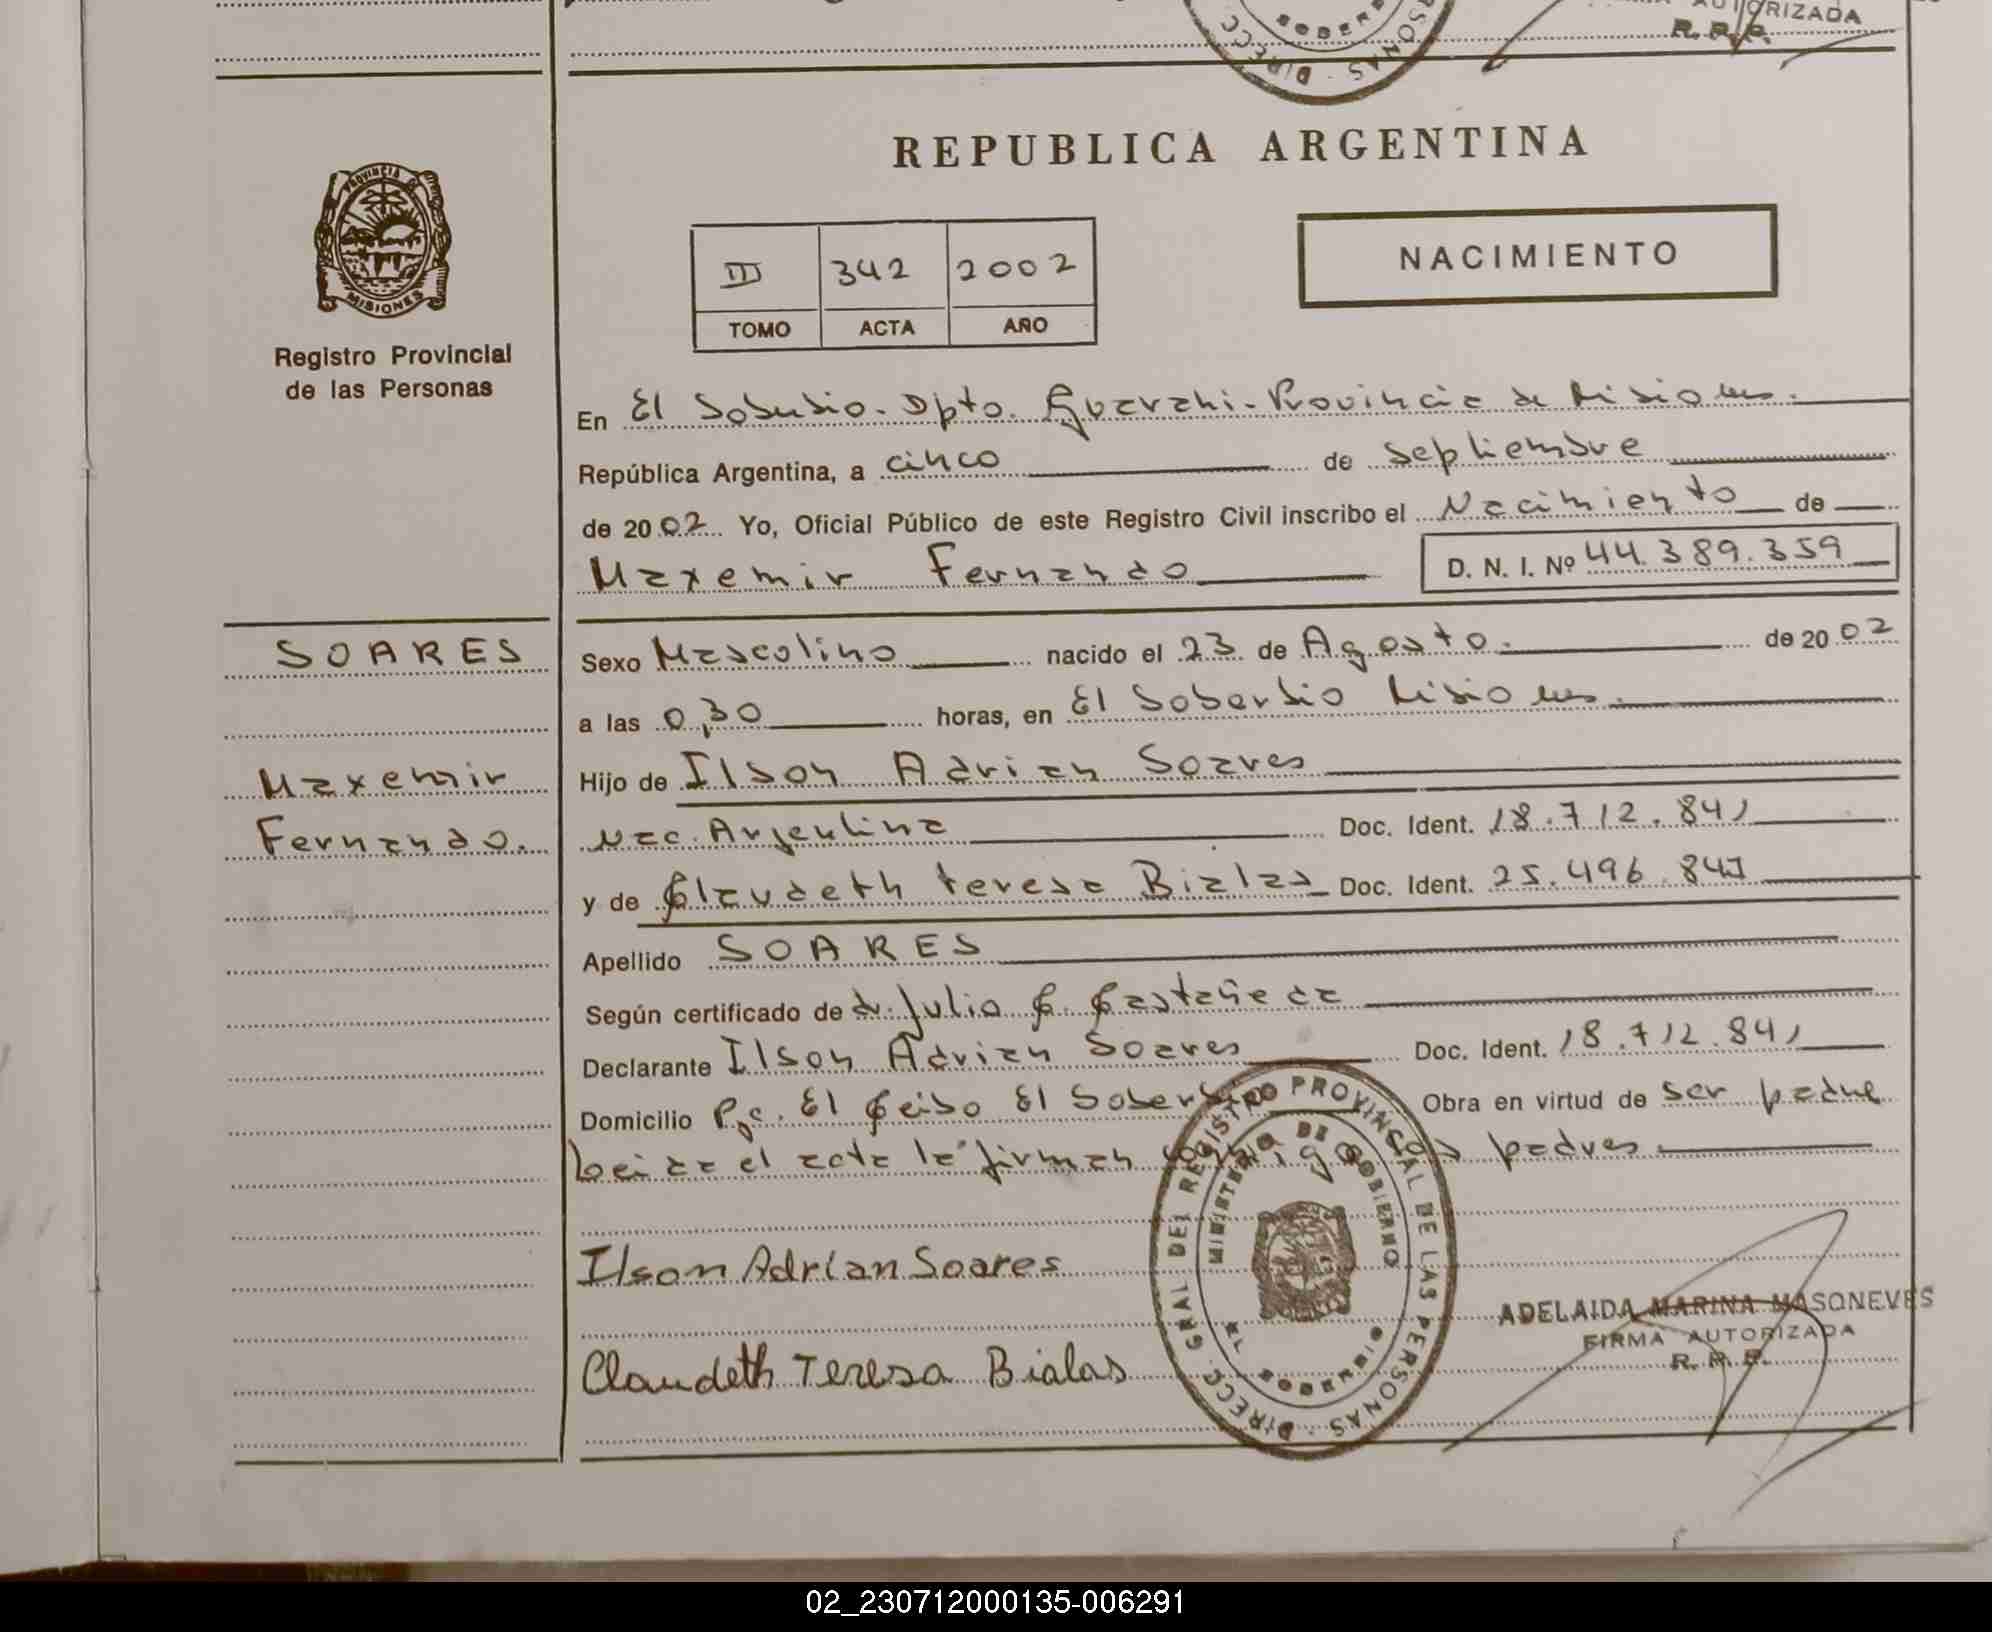 AUTORIZADA
R. P. P.
REPUBLICA ARGENTINA
PROVINCIA DE
MISIONES
Registro Provincial
de las Personas
III 342 2002
TOMO ACTA AÑO
NACIMIENTO
En El Soberbio. Dpto. Guarani. Provincia de Misiones.
República Argentina, a cinco de Septiembre
de 2002 Yo, Oficial Público de este Registro Civil inscribo el Nacimiento de
Maxemir Fernando D. N. I. Nº 44.389.359
SOARES
Maxemir
Fernando.
Sexo Mascolino nacido el 23 de Agosto. de 2002
a las 0,30 horas, en El Soberbio Misiones.
Hijo de Ilson Adrian Soares
Nac. Argentina Doc. Ident. 18.712.841
y de Claudeth teresa Bialas Doc. Ident. 25.496.841
Apellido SOARES
Según certificado de dr. Julio C. Castañeda
Declarante Ilson Adrian Soares Doc. Ident. 18.712.841
Domicilio Pje. El Ceibo El Soberbio Obra en virtud de ser padre
Leida el acta la firman conmigo los padres
Ilson Adrian Soares
Claudeth Teresa Bialas
DIRECC. GRAL DEL REGISTRO PROVINCIAL DE LAS PERSONAS
MINISTERIO DE GOBIERNO
EL SOBERBIO
ADELAIDA MARINA MASONEVES
FIRMA AUTORIZADA
R. P. P.
02_230712000135-006291